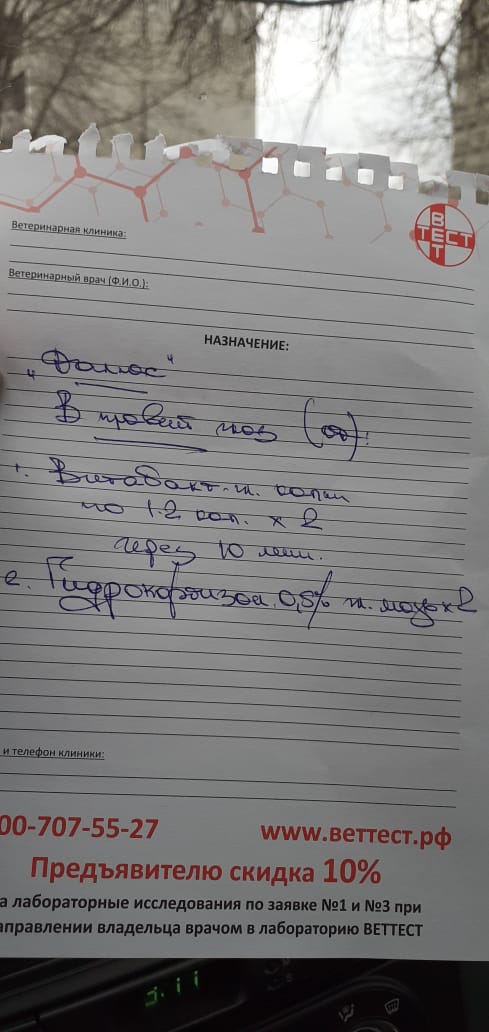 ВЕТ ТЕСТ
Ветеринарная клиника:
Ветеринарный врач (Ф.И.О.):
НАЗНАЧЕНИЕ:
В правый глаз
1. Витабакт гл. капли
по 1-2 кап. х 2
через 10 мин.
2. Гидрокортизон 0,5% гл. мазь х 2
и телефон клиники:
00-707-55-27 www.веттест.рф
Предъявителю скидка 10%
а лабораторные исследования по заявке №1 и №3 при
аправлении владельца врачом в лабораторию ВЕТТЕСТ